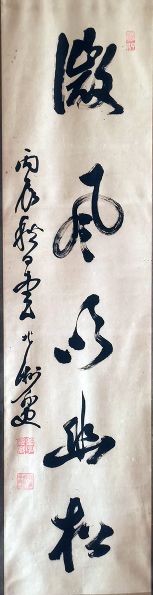 微風吹幽松
丙辰秋日書 北